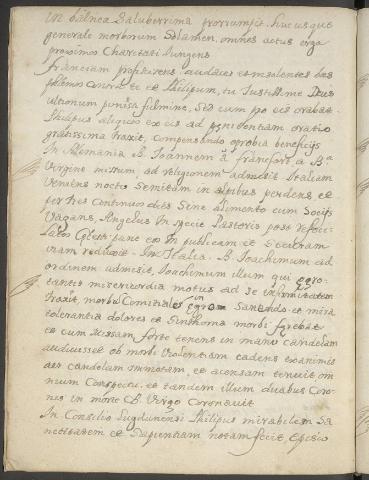 in balnea Saluberrima prorrumpit. hucusque
generale morborum Solamen. omnes actus erga
proximos Charitati Iungens
franciam profiterens. audaces et insolentes
te et Philipum, tu Iustissime Deus
ultionum punisti fulmine, Sed cum pro eis orabat
Philipus aliquos ex eis ad penitentiam oratio
gratissima traxit, compensando oprobia beneficijs
In Allemania B. Ioannem à Francfort a Ba
Virgine missum, ad religionem admisit. Italiam
Veniens nocte Semitam in alpibus perdens, et
per tres continuo dies Sine alimento cum Socijs
Vagans, Angelus in Specie Pastoris post refoci-
latos Celesti pane eos in publicam et Securam
viam reduxit. In Italia B. Ioachimum ad
ordinem admisit, Ioachimum illum qui egro-
tantis misericordia motus ad se infirmitatem
traxit, morbū Comitialē in egrum Sanando et mira
tolerantia dolores et Sinthoma morbi ferebat
et cum Missam forte tenens in manu candelam
audiuisset ob morbi Vrgentiam cadens exanimis
aer candelam immotam, et acensam tenuit om
nium Conspectu, et tandem illum duabus Coro-
nis in morte B. Virgo Coronauit
In Consilio Lugdunensi Philipus mirabilem Sa
nctitatem et Sapientiam notam fecit